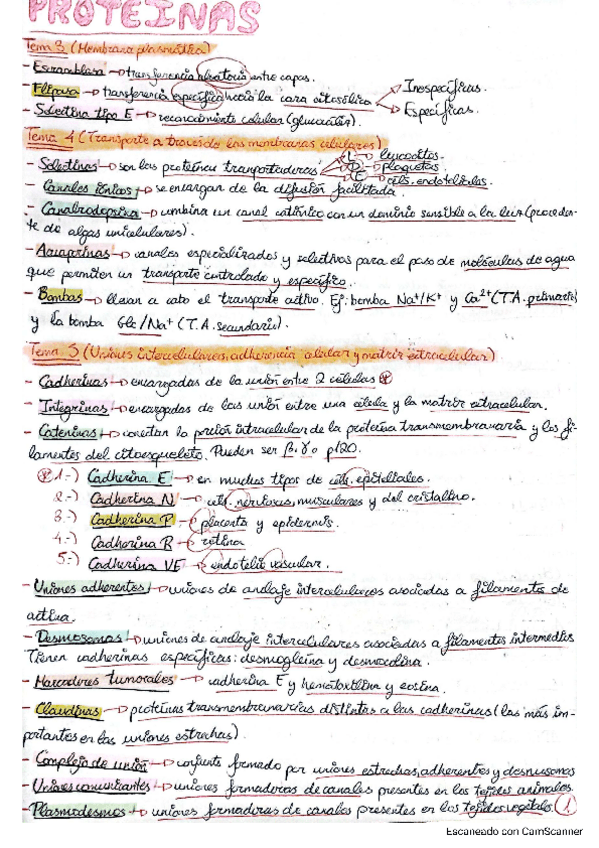 PROTEINAS
Tema 3 (Membrana plasmática)
- Escramblasa → transferencia aleatoria entre capas.
- Flipasa → transferencia específica hacia la cara citosólica Inespecíficas.
Específicas.
- Selectina tipo E → reconocimiento celular (glucocálix).
Tema 4 (Transporte a través de las membranas celulares)
- Selectinas → son las proteínas tranportadoras L - leucocitos.
P - plaquetas.
E - céls. endoteliales.
- Canales iónicos → se encargan de la difusión facilitada.
- Canalrodopsina → combina un canal catiónico con un dominio sensible a la luz (proceden-
te de algas unicelulares).
- Acuaporinas → canales especializados y selectivos para el paso de moléculas de agua
que permiten un transporte controlado y específico.
- Bombas → llevan a cabo el transporte activo. Ej: bomba Na⁺/K⁺ y Ca²⁺ (T.A. primario)
y la bomba Glc/Na⁺ (T.A. secundario).
Tema 5 (Uniones intercelulares, adherencia celular y matriz extracelular)
- Cadherinas → encargadas de la unión entre 2 células ⊛
- Integrinas → encargadas de las unión entre una célula y la matriz extracelular.
- Cateninas → conectan la porción intracelular de la proteína transmembranaria y los fi-
lamentos del citoesqueleto. Pueden ser β, γ o p120.
⊛ 1.-) Cadherina E → en muchos tipos de céls. epiteliales.
2.-) Cadherina N → céls. nerviosas, musculares y del cristalino.
3.-) Cadherina P → placenta y epidermis.
4.-) Cadherina R → retina
5.-) Cadherina VE → endotelio vascular.
- Uniones adherentes → uniones de anclaje intercelulares asociadas a filamentos de
actina.
- Desmosomas → uniones de anclaje intercelulares asociadas a filamentos intermedios
Tienen cadherinas específicas: desmogleína y desmocolina.
- Marcadores tumorales → cadherina E y hematoxilina y eosina.
- Claudinas → proteínas transmembranarias distintas a las cadherinas (las más im-
portantes en las uniones estrechas).
- Complejo de unión → conjunto formado por uniones estrechas, adherentes y desmosomas
- Uniones comunicantes → uniones formadoras de canales presentes en los tejidos animales.
- Plasmodesmos → uniones formadoras de canales presentes en los tejidos vegetales. 1
Escaneado con CamScanner